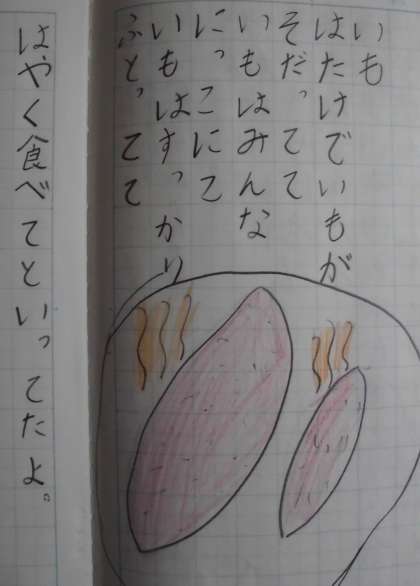 いも
はたけでいもが
そだってて
いもはみんな
にっこにこ
いもはすっかり
ふとってて
はやく食べてといってたよ。